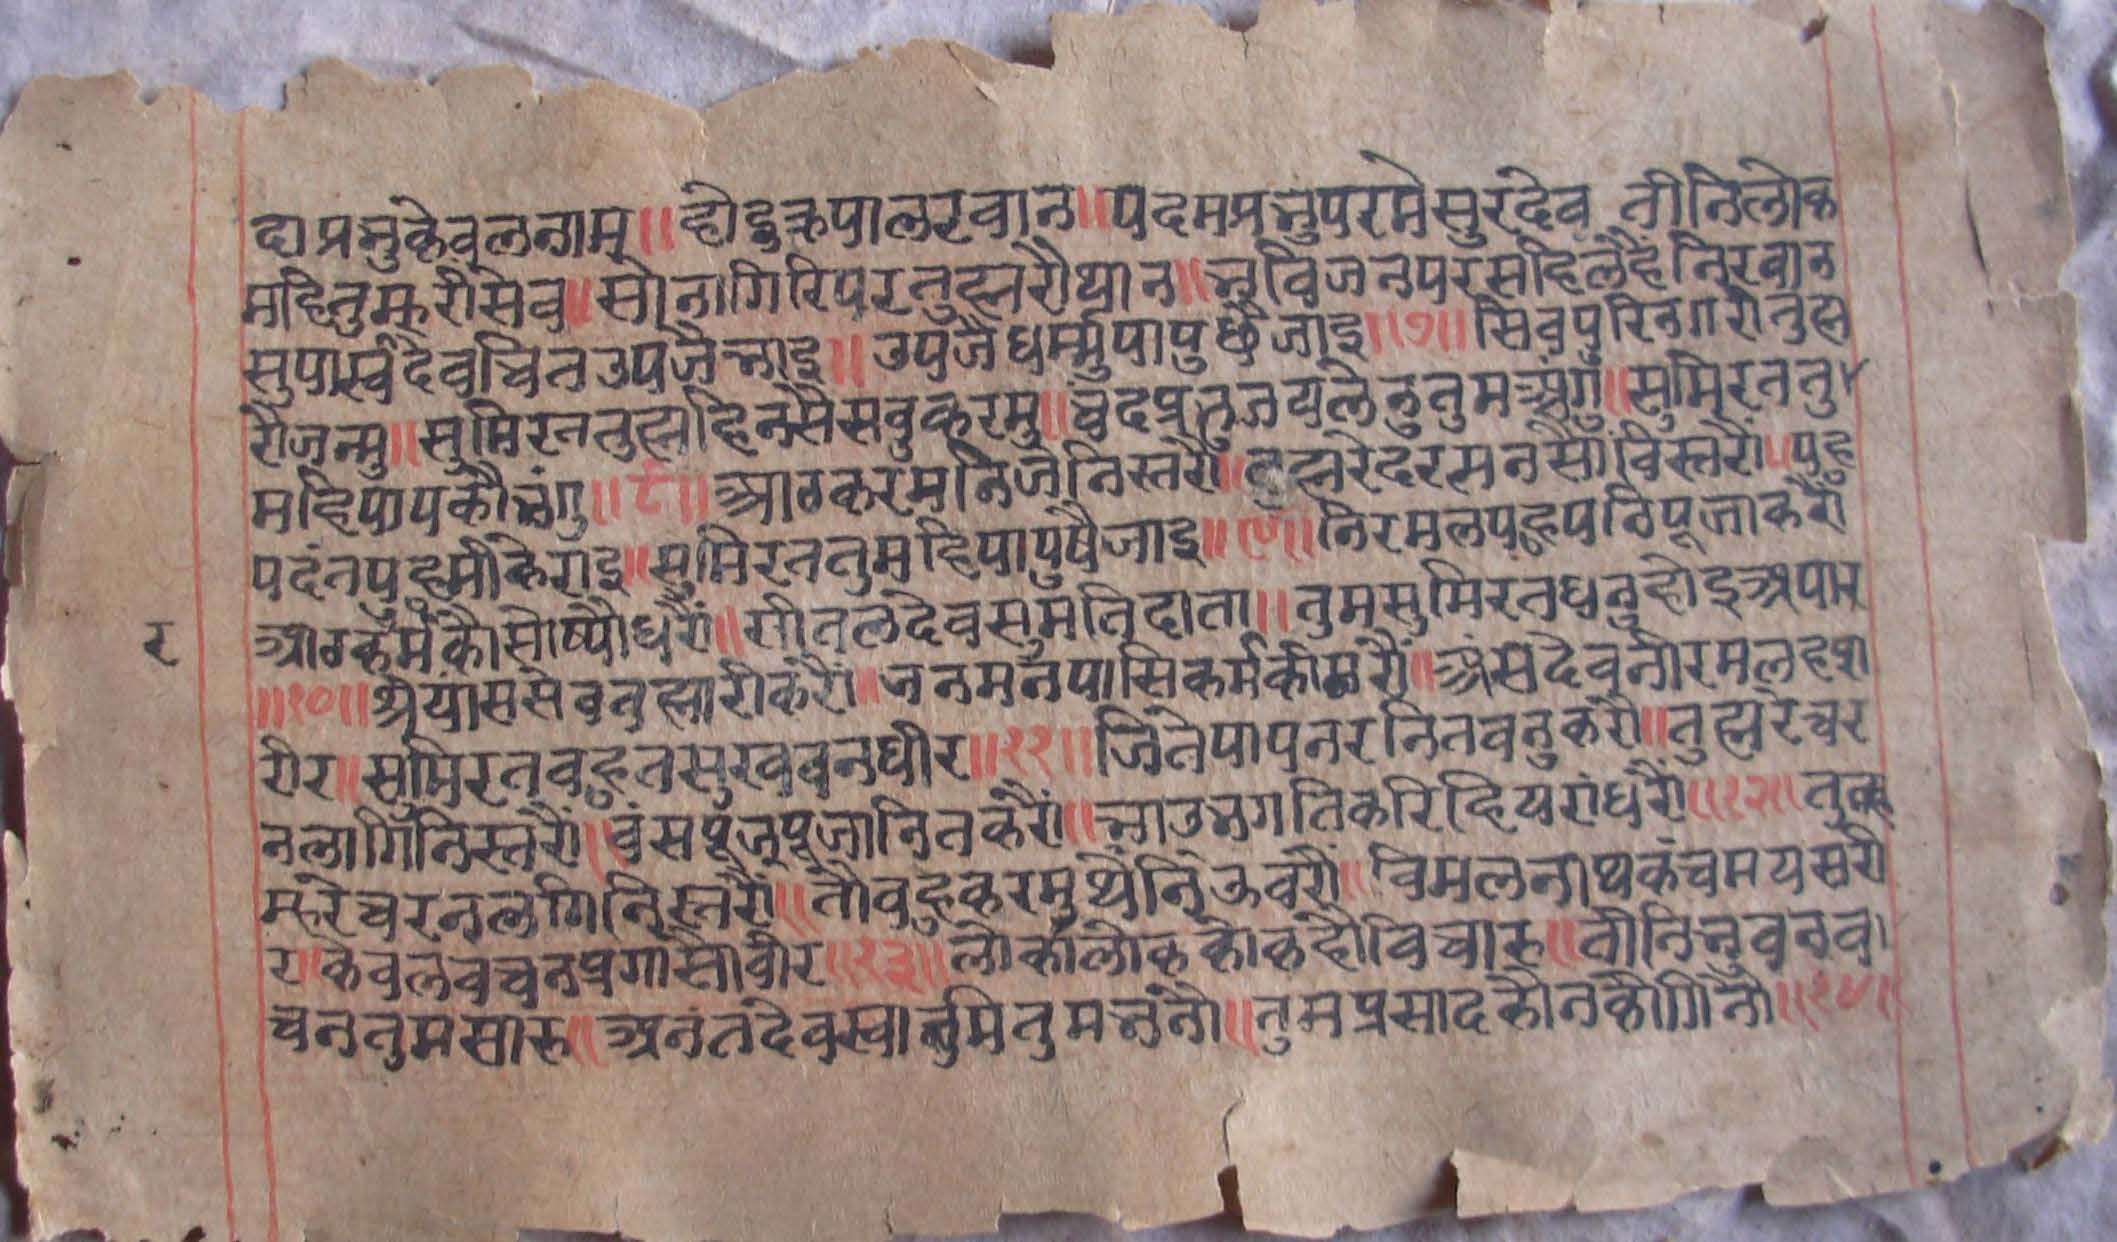 दा प्रभु केवलनाम॥ होइ क्रपाल रवान॥ पदमप्रभु परमेसुर देव तीनि लोक
महि तुम्ररी सेव॥ सोनागिरि पर तुह्मरौ थान॥ भविजन परसहि लहै निरवान
सुपार्स्व देव चित उपजै भाइ॥ उपजै धर्म्मु पापु छै जाइ॥७॥ सिवपुरि नगरी तुह्म
रौ जन्मु॥ सुमिरत तुह्महि नसै सवु करमु॥ चंदप्रभु जय लेछु तुम अंगु॥ सुमिरत तु
महि पाप कौ भंगु॥८॥ आठ करम निजे निस्तरौ॥ तुह्मरे दरसन सौं विस्तरौं॥ पुहु
पदंत पुहमी के राइ॥ सुमिरत तुमहि पापु षै जाइ॥९॥ निरमल पुहुप ठि पूजा करौं
आठ कर्म कौ सोष्यौ धरौं॥ सीतल देव सुमति दाता॥ तुम सुमिरत धनु होइ अपार
॥१०॥ श्रेयांस सेव तुह्मारी करौं॥ जनम न पासि कर्म की परौं॥ अंस देव नीरमल ह श
रीर॥ सुमिरत वहुत सुख वन धीर॥११॥ जिते पाप नर नितवनु करौ॥ तुह्मरे चर
न लागि निस्तरौं॥ वंसपूज पूजा नित करौं॥ भाउ भगति करि हियरां धरौं॥१२॥ तुम्ह
म्हरे चरन लागि निस्तरौं॥ तौ वहु करमु थै नि ऊवरौं॥ विमलनाथ कंचमय सरी
र॥ केवल वचन प्रगासौ वीर॥१३॥ लोकालोक को कहौ विचारु॥ तीनि भुवन व
चन तुम सारु॥ अनंत देव स्वामि तुम भनौ॥ तुम प्रसाद कौन कौ गिनौ॥१४॥
र